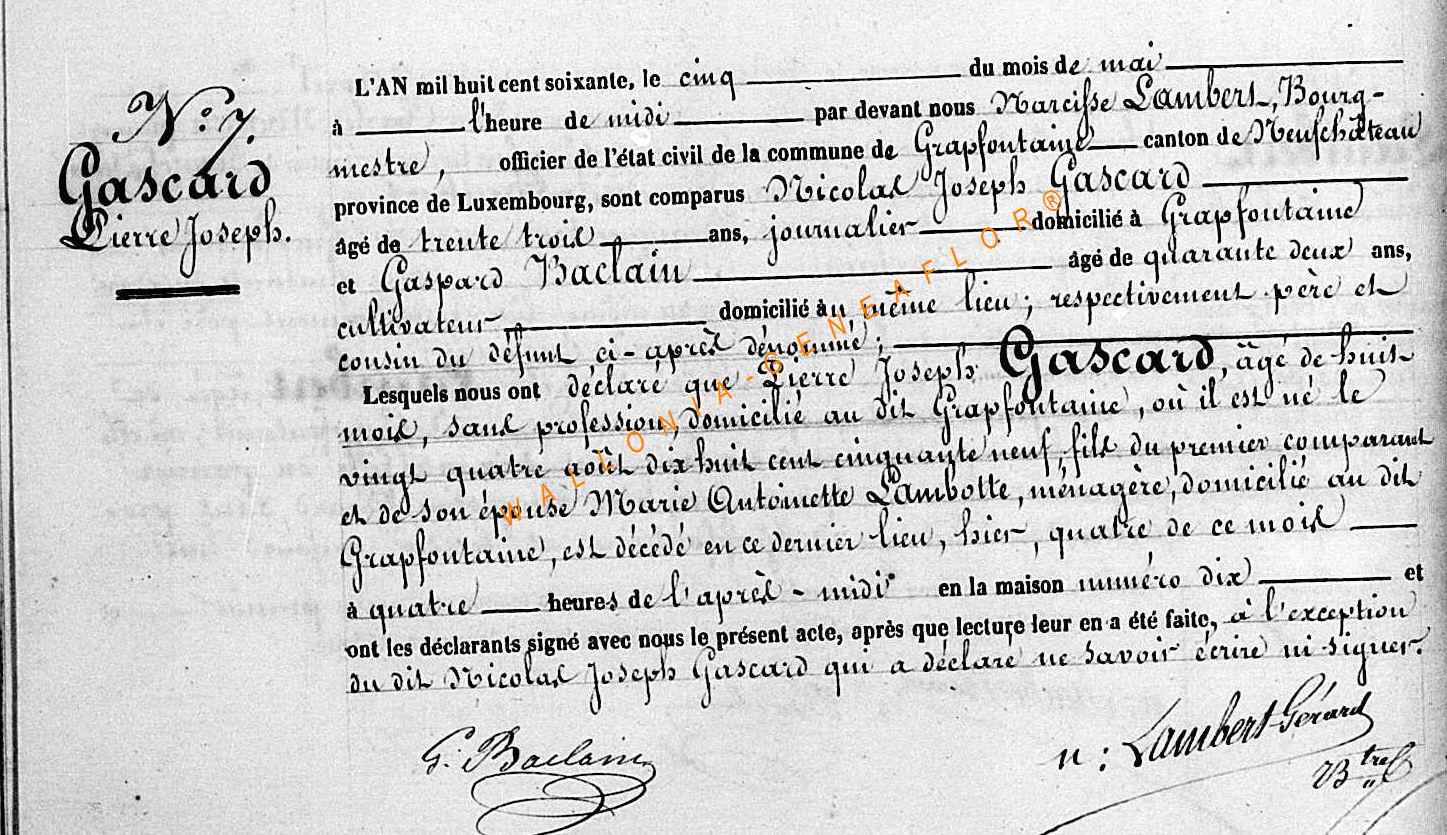 N.° 7.
Gascard
Pierre Joseph.
L'AN mil huit cent soixante, le cinq du mois de mai
à l'heure de midi par devant nous Narcisse Lambert, Bourg-
mestre, officier de l'état civil de la commune de Grapfontaine canton de Neufchâteau
province de Luxembourg, sont comparus Nicolas Joseph Gascard
âgé de trente trois ans, journalier domicilié à Grapfontaine
et Gaspard Baclain âgé de quarante deux ans,
cultivateur domicilié au même lieu ; respectivement père et
cousin du défunt ci-après dénommé ;
Lesquels nous ont déclaré que Pierre Joseph Gascard, âgé de huit
mois, sans profession, domicilié au dit Grapfontaine, où il est né le
vingt quatre août dix huit cent cinquante neuf, fils du premier comparant
et de son épouse Marie Antoinette Lambotte, ménagère, domicilié au dit
Grapfontaine, est décédé en ce dernier lieu, hier, quatre de ce mois
à quatre heures de l'après-midi en la maison numéro dix et
ont les déclarants signé avec nous le présent acte, après que lecture leur en a été faite, à l'exception
du dit Nicolas Joseph Gascard qui a déclaré ne savoir écrire ni signer.
G. Baclain
n : Lambert-Gérard
B tre
WALLONIA-GENEAFLOR®